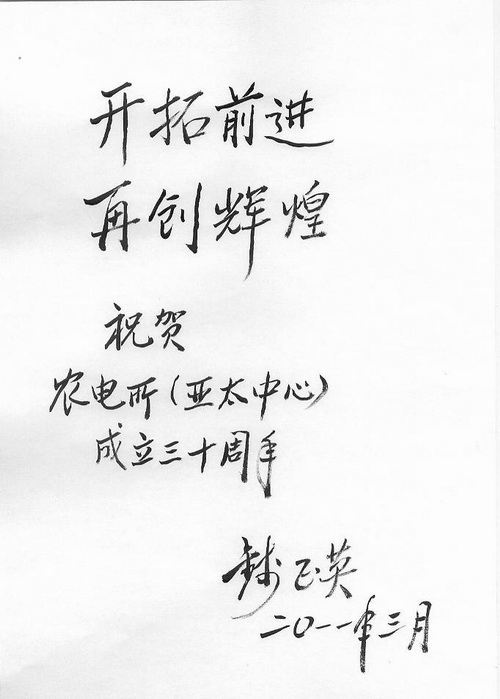 开拓前进
再创辉煌
祝贺
农电所(亚太中心)
成立三十周年
钱正英
二〇一一年三月